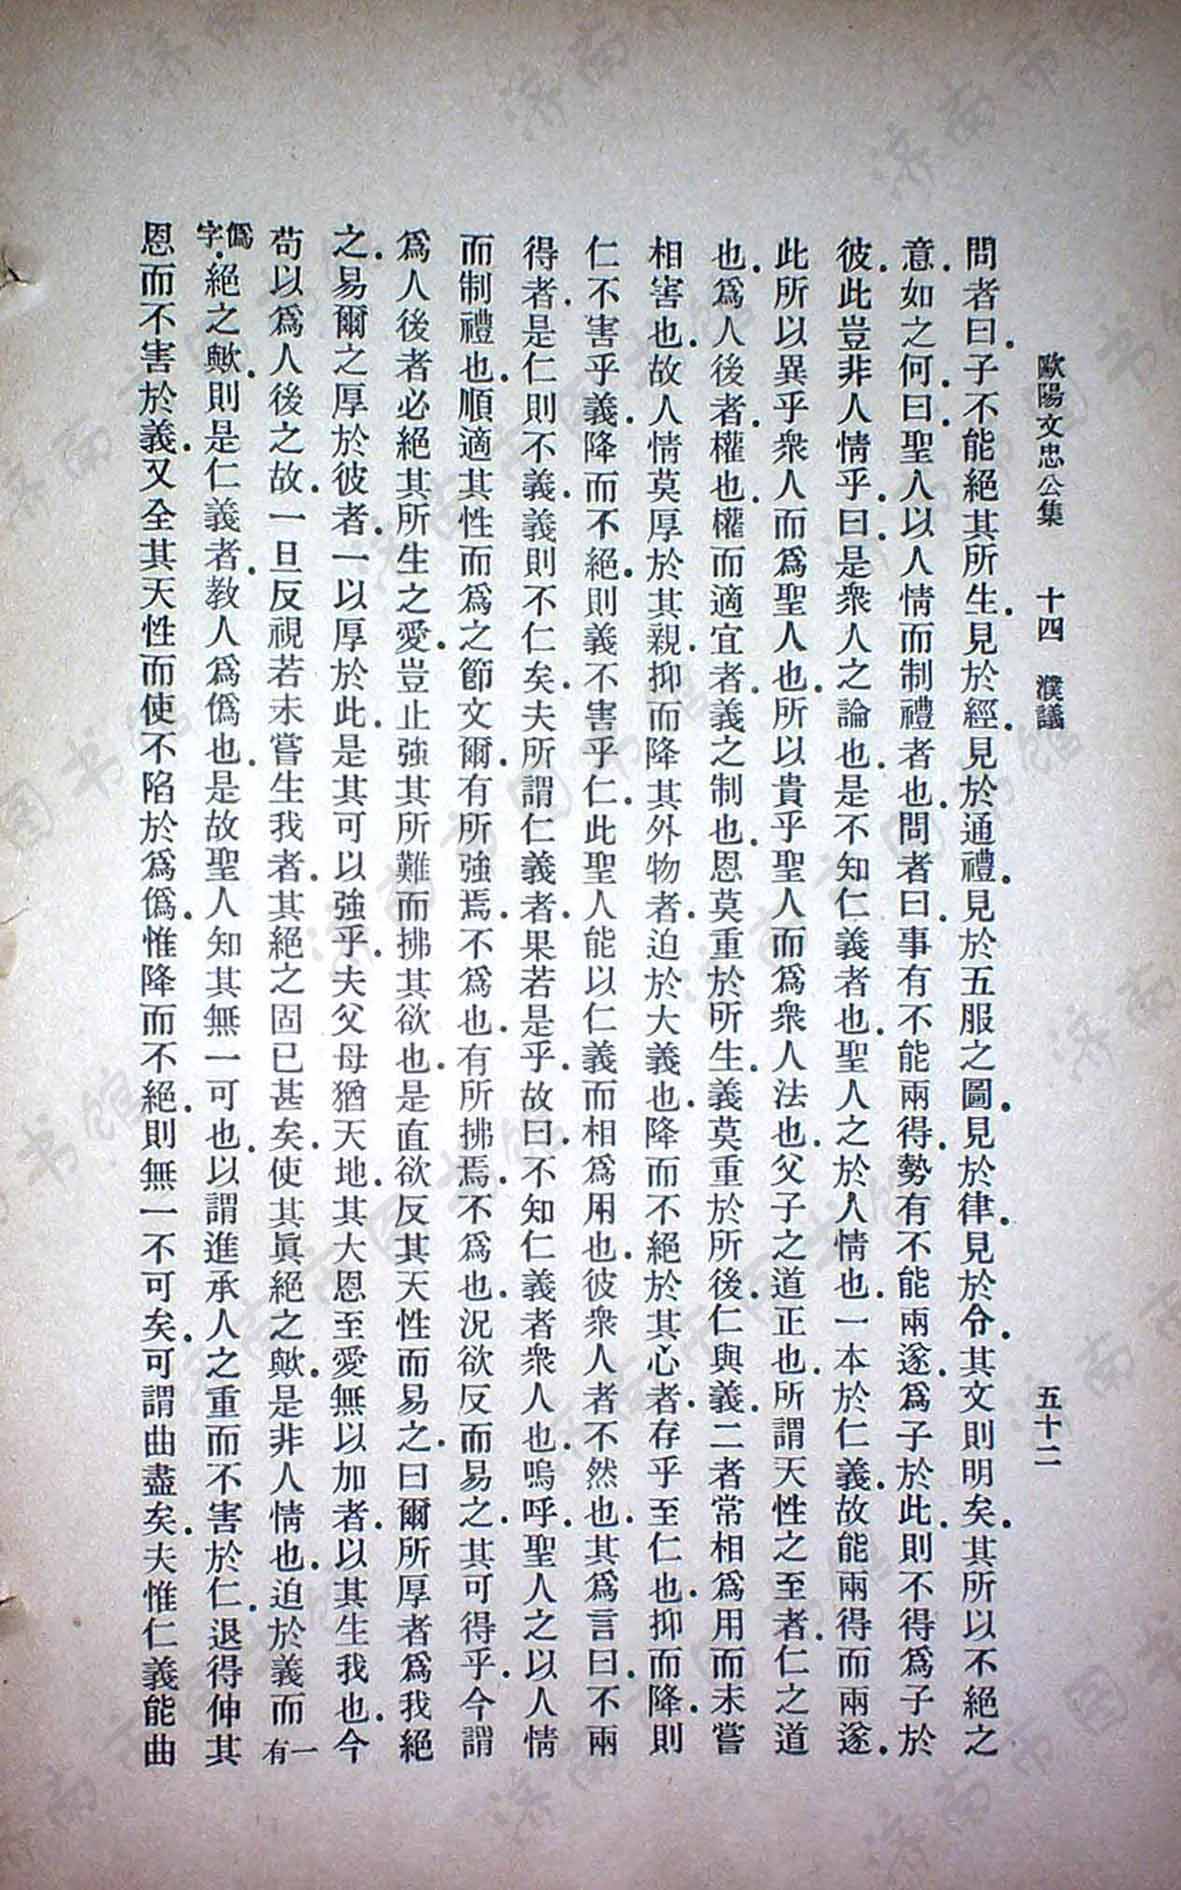 歐陽文忠公集　十四　濮議　五十二
問者曰.子不能絕其所生.見於經.見於通禮.見於五服之圖.見於律.見於令.其文則明矣.其所以不絕之
意.如之何.曰.聖人以人情而制禮者也.問者曰.事有不能兩得.勢有不能兩遂.爲子於此.則不得爲子於
彼.此豈非人情乎.曰.是衆人之論也.是不知仁義者也.聖人之於人情也.一本於仁義.故能兩得而兩遂.
此所以異乎衆人而爲聖人也.所以貴乎聖人而爲衆人法也.父子之道正也.所謂天性之至者.仁之道
也.爲人後者.權也.權而適宜者.義之制也.恩莫重於所生.義莫重於所後.仁與義.二者常相爲用而未嘗
相害也.故人情莫厚於其親.抑而降其外物者.迫於大義也.降而不絕於其心者.存乎至仁也.抑而降.則
仁不害乎義.降而不絕.則義不害乎仁.此聖人能以仁義而相爲用也.彼衆人者不然也.其爲言曰.不兩
得者.是仁則不義.義則不仁矣.夫所謂仁義者.果若是乎.故曰.不知仁義者.衆人也.嗚呼.聖人之以人情
而制禮也.順適其性而爲之節文爾.有所強焉.不爲也.有所拂焉.不爲也.況欲反而易之.其可得乎.今謂
爲人後者必絕其所生之愛.豈止強其所難而拂其欲也.是直欲反其天性而易之.曰爾所厚者爲我絕
之.易爾之厚於彼者.一以厚於此.是其可以強乎.夫父母猶天地.其大恩至愛無以加者.以其生我也.今
苟以爲人後之故.一旦反視若未嘗生我者.其絕之固已甚矣.使其眞絕之歟.是非人情也.迫於義而一有
僞字.絕之歟.則是仁義者.教人爲僞也.是故聖人知其無一可也.以謂進承人之重而不害於仁.退得伸其
恩而不害於義.又全其天性而使不陷於爲僞.惟降而不絕.則無一不可矣.可謂曲盡矣.夫惟仁義能曲
济南市图书馆